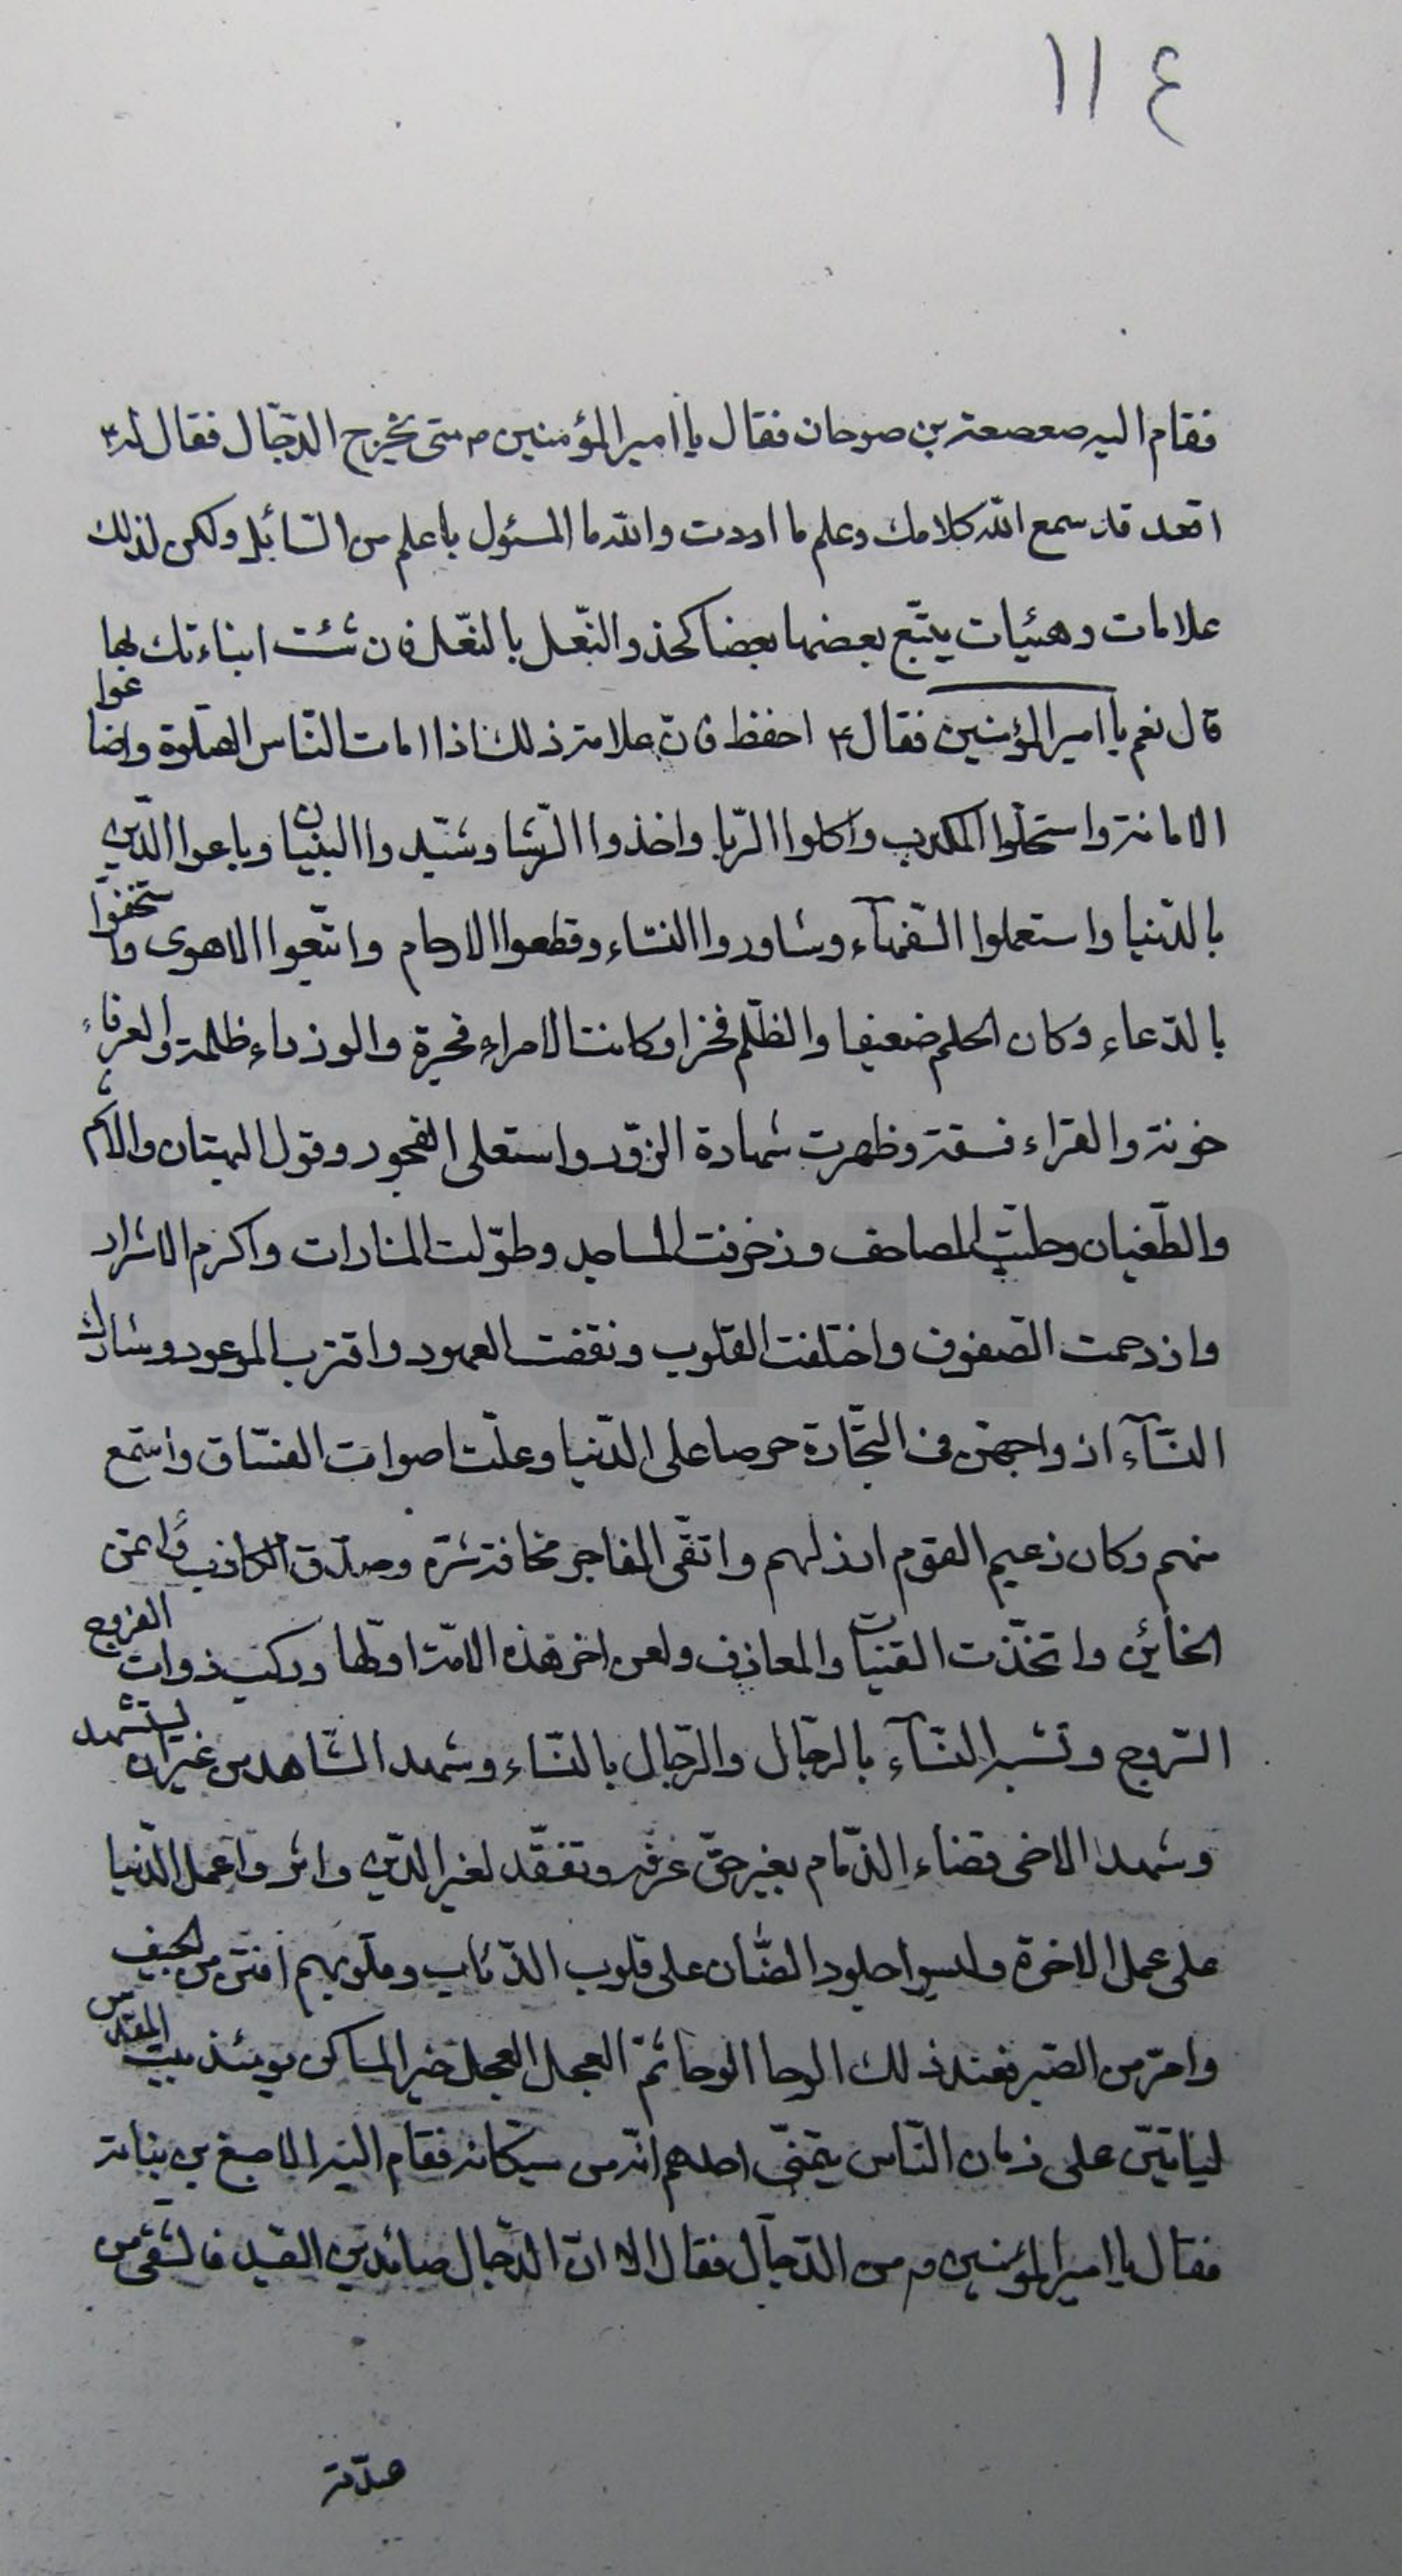 ١١٤
فقام اليه صعصعة بن صوحان فقال يا امير المؤمنين م متى يخرج الدّجّال فقال له ع
اقعد قد سمع الله كلامك وعلم ما اردت والله ما المسئول باعلم من السّائل ولكن لذلك
علامات وهيئات يتبّع بعضها بعضا كحذو النّعل بالنّعل فان شئت انباءتك بها
قال نعم يا امير المؤمنين فقال ع احفظ فانّ علامة ذلك اذا امات النّاس الصّلوة واضاعوا
الامانة واستحلّوا الكذب واكلوا الرّبا واخذوا الرّشا وشيّدوا البنيان وباعوا الدّين
بالدّنيا واستعملوا السّفهآء وشاوروا النّساء وقطعوا الارحام واتّبعوا الاهوى واستخفّوا
بالدّعاء وكان الحلم ضعيفا والظّلم فخرا وكانت الامراء فجرة والوزراء ظلمة والعرفاء
خونة والقراء فسقة وظهرت شهادة الزّور واستعلى الفجور وقول البهتان والاثم
والطّغيان وحلّيت المصاحف وزخرفت المساجد وطوّلت المنارات واكرم الاشرار
وازدحمت الصّفوف واختلفت القلوب ونقضت العهود واقترب الموعود وشارك
النّسآء ازواجهنّ فى التّجّارة حرصا على الدّنيا وعلت اصوات الفسّاق واستمع
منهم وكان زعيم القوم ارذلهم واتقّى الفاجر مخافة شرّه وصدّق الكاذب وائتمن
الخائن واتخّذت القينات والمعازف ولعن اخر هذه الامّة اوّلها وركب ذوات الفروج
السّروج وتشبه النّسآء بالرّجال والرّجال بالنّساء وشهد الشّاهد من غير ان يستشهد
وشهد الاخر قضاء الذّمام بغير حقّ عرفه وتفقّه لغير الدّين واثروا عمل الدّنيا
على عمل الاخرة ولبسوا جلود الضّأن على قلوب الذّئاب وقلوبهم انتن من الجيف
وامرّ من الصّبر فعند ذلك الوحا الوحا ثمّ العجل العجل خير المساكن يومئذ بيت المقدّس
لياتينّ على زمان النّاس يتمنّى احدهم انّه من سكّانه فقام اليه الاصبغ بن نباتة
فقال يا امير المؤمنين م من الدّجّال فقال الا انّ الدّجال صائد بن الصّيد فالشقى من
صدّقه